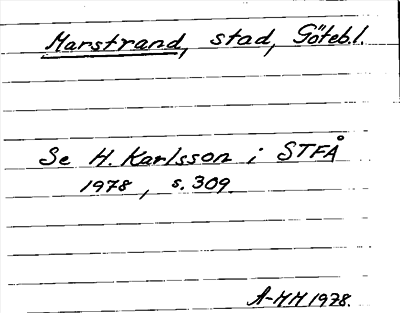 Marstrand, stad, Göteb.l.
Se H. Karlsson i STFÅ
1978, s. 309
A-MM 1978.